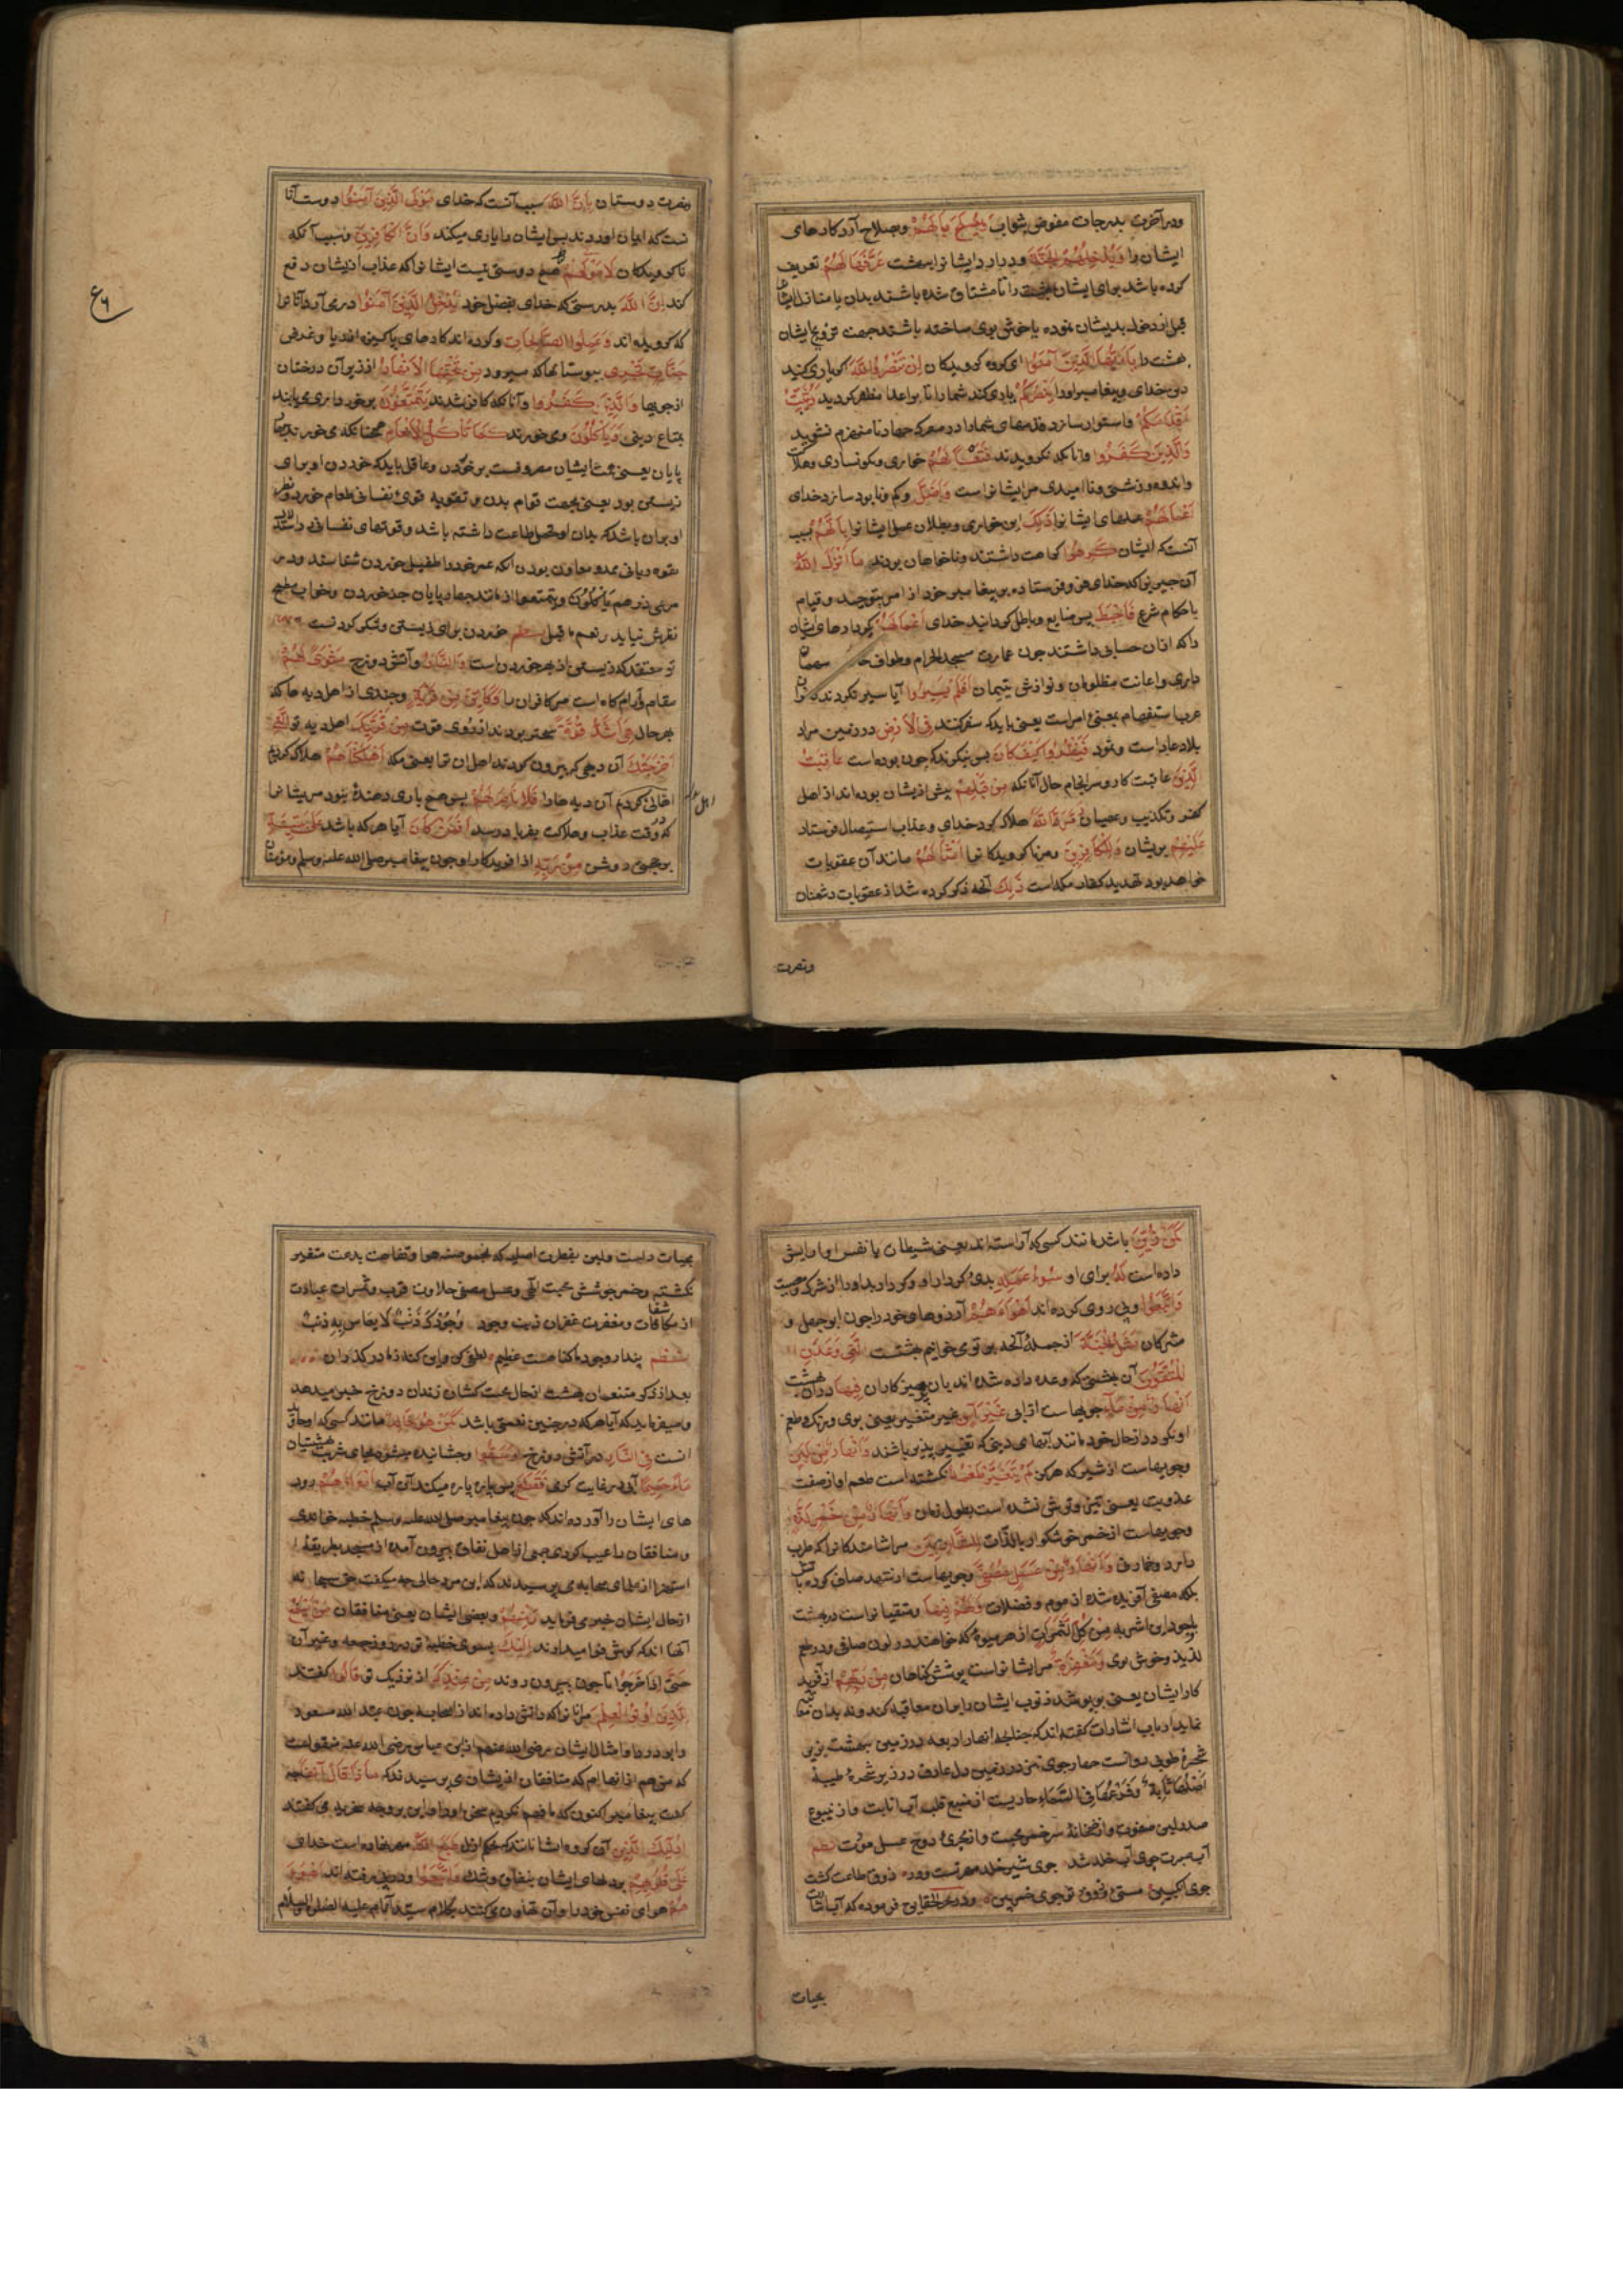 ودر آخرت بدرجات مفوض بثواب وَيُصْلِحُ بَالَهُمْ وبصلاح آرد کارهای
ایشان را وَيُدْخِلُهُمُ الْجَنَّةَ ودر ارد ایشانرا ببهشت عَرَّفَهَا لَهُمْ تعریف
کرده باشد برای ایشان بهشت را تا مشتاق شده باشند بدان یا منازل ایشان
قبل از دخول بدیشان نموده یا خوش بوی ساخته باشند جهت ایشان
بهشت را يَا أَيُّهَا الَّذِينَ آمَنُوا ای گروه گرویدگان إِنْ تَنْصُرُوا اللَّهَ اگر یاری کنید
دین خدای و پیغامبر او را يَنْصُرْكُمْ یاری کند شما را تا بر اعدا مظفر گردید وَيُثَبِّتْ
أَقْدَامَكُمْ واستوار سازد قدمهای شما را در معرکه جهاد تا منهزم نشوید
وَالَّذِينَ كَفَرُوا وانانکه نگرویدند فَتَعْسًا لَهُمْ خواری ونگونساری وهلاک
واندوه وزشتی وناامیدی مر ایشانراست وَأَضَلَّ وگم ونابود سازد خدای
أَعْمَالَهُمْ عملهای ایشانرا ذَلِكَ این خواری وبطلان عمل ایشانرا بِأَنَّهُمْ بسبب
آنست که ایشان كَرِهُوا کراهت داشتند وناخواهان بودند مَا أَنْزَلَ اللَّهُ
آن چیزیرا که خدای فرو فرستاده بر پیغامبر خود از امر بتوحید وقیام
باحکام شرع فَأَحْبَطَ پس ضایع وباطل گردانید خدای أَعْمَالَهُمْ کردارهای ایشان
را که ازان حسابی داشتند چون عمارت مسجد الحرام وطواف
داری واعانت مظلومان ونوازش یتیمان أَفَلَمْ يَسِيرُوا آیا سیر نکردند
عرب استفهام بمعنی امر است یعنی باید که سفر کنند فِي الْأَرْضِ در زمین مراد
بلاد عاد است وثمود فَيَنْظُرُوا كَيْفَ كَانَ پس بنگرند که چون بوده است عَاقِبَةُ
الَّذِينَ عاقبت کار وسرانجام حال آنانکه مِنْ قَبْلِهِمْ پیش از ایشان بوده اند از اهل
کفر وتکذیب وعصیان دَمَّرَ اللَّهُ هلاک کرد خدای وعذاب استیصال فرستاد
عَلَيْهِمْ بریشان وَلِلْكَافِرِينَ ومرناگرویدگانرا أَمْثَالُهَا مانند آن عقوبات
خواهد بود تهدید کفار مکه است ذَلِكَ آنچه ذکر کرده شد از عقوبات دشمنان
ونصرت
ونصرت دوستان بِأَنَّ اللَّهَ بسبب آنست که خدای مَوْلَى الَّذِينَ آمَنُوا دوست آنا
نست که ایمان اوردند پس ایشان را یاری میکند وَأَنَّ الْكَافِرِينَ وبسبب آنکه
ناگرویدگان لَا مَوْلَى لَهُمْ هیچ دوستی نیست ایشانرا که عذاب از ایشان دفع
کند إِنَّ اللَّهَ بدرستی که خدای بفضل خود يُدْخِلُ الَّذِينَ آمَنُوا در می آرد آنانرا
که گرویده اند وَعَمِلُوا الصَّالِحَاتِ وکرده اند کارهای پاکیزه
جَنَّاتٍ تَجْرِي ببوستانها که میرود مِنْ تَحْتِهَا الْأَنْهَارُ از زیر آن درختان
از جویها وَالَّذِينَ كَفَرُوا وآنانکه کافر شدند يَتَمَتَّعُونَ برخورداری می یابند
بمتاع دینی وَيَأْكُلُونَ ومی خورند كَمَا تَأْكُلُ الْأَنْعَامُ همچنانکه می خورند چهار
پایان یعنی همت ایشان مصروفست برخوردن وعاقل باید که خوردن او برای
زیستن بود یعنی بجهت قوام بدن وتقویه قوی نفسانی طعام خورد ونظر
او بران باشد که بدان او تحمل طاعت داشته باشد وقوتهای نفسانی
بقوه ربانی ممد ومعاون بود نه آنکه عمر خود را طفیل خوردن شناسد ودر
نظم خوردن برای زیستن وذکر کردنست
تو معتقد که زیستن از بهر خوردن است وَالنَّارُ وآتش دوزخ مَثْوًى لَهُمْ
مقام وآرامگاه است مر کافران را وَكَأَيِّنْ مِنْ قَرْيَةٍ وچندی از اهل دیه ها که
بهرحال هِيَ أَشَدُّ قُوَّةً سختر بودند از روی قوت مِنْ قَرْيَتِكَ اهل دیه تو الَّتِي
أَخْرَجَتْكَ آن دیهی که بیرون کردند اهل ان ترا یعنی مکه أَهْلَكْنَاهُمْ هلاک کردیم
اهالی آن دیه ها را فَلَا نَاصِرَ لَهُمْ پس هیچ یاری دهندهٔ نبود مر ایشانرا
که در وقت عذاب وهلاکت بفریاد رسد أَفَمَنْ كَانَ آیا هر که باشد عَلَى بَيِّنَةٍ
بر حجتی روشن مِنْ رَبِّهِ از افریدگار او چون پیغامبر صلی الله علیه وسلم ومؤمنان
اهل
ع
كَمَنْ زُيِّنَ باشد مانند کسی که آراسته اند یعنی شیطان یا نفس او ارایش
داده است لَهُ برای او سُوءُ عَمَلِهِ بدی کردار او وکردار بد او را از شرک ومعصیت
وَاتَّبَعُوا وپی روی کرده اند أَهْوَاءَهُمْ آرزوهای خود را چون ابوجهل و
مشرکان مَثَلُ الْجَنَّةِ از جملهٔ آنچه بر تو می خوانیم بهشت الَّتِي وُعِدَ
الْمُتَّقُونَ آن بهشتی که وعده داده شده اند بان پرهیزکاران فِيهَا دران بهشت
أَنْهَارٌ مِنْ مَاءٍ جویها ست از ابی غَيْرِ آسِنٍ غیر متغیر یعنی بوی ورنگ وطعم
او نگردد از حال خود مانند آبهای دنیی که تغییر پذیر باشند وَأَنْهَارٌ مِنْ لَبَنٍ
وجویهاست از شیر که هرگز لَمْ يَتَغَيَّرْ طَعْمُهُ نگشته است طعم او از صفت
عذوبت یعنی تیز وترش نشده است بطول زمان وَأَنْهَارٌ مِنْ خَمْرٍ لَذَّةٍ
وجویهاست از خمر خوشگوار بالذات لِلشَّارِبِينَ مر آشامندگانرا که طرب
دارد وخماری وَأَنْهَارٌ مِنْ عَسَلٍ مُصَفًّى وجویهاست از شهد صاف کرده
بلکه مصفی آفریده شده از موم وفضلات وَلَهُمْ فِيهَا ومتقیانراست در بهشت
باوجود این اشربه مِنْ كُلِّ الثَّمَرَاتِ از هر میوهٔ که خواهند در لون صافی ودر طعم
لذیذ وخوش بوی وَمَغْفِرَةٌ مر ایشانراست پوشش گناهان مِنْ رَبِّهِمْ از آفرید
کار ایشان یعنی بپوشد ذنوب ایشان را
نماید ارباب اشارات گفته اند که چنانچه انهار اربعه در زمین بهشت بزیر
شجرهٔ طوبی روانست چهار جوی نیز در زمین دل عارف در زیر شجرهٔ طیبهٔ
أَصْلُهَا ثَابِتٌ وَفَرْعُهَا فِي السَّمَاءِ جاریست از منبع قلب آب انابت واز ینبوع
صدر لبن صفوت واز خمخانهٔ سر خمر محبت واز مجرای روح عسل مودت نظم
آب صبرت جوی آب خلد شد جوی شیر خلد مهر تست وود ذوق طاعت گشت
جوی انگبین مستی وذوق تو جوی خمر بین ودر بحر الحقایق فرموده که آب اشارت
بحیات
بحیات دلست ولبن بفطرت اصلیه که بحموضت هوا وتفاهت بدعت متغیر
نگشته وخمر جوشش محبت الهی وعسل مصفی حلاوت قرب وثمرات عبارت
از مکافات ومغفرت غفران ذنب وجود وُجُودُكَ ذَنْبٌ لا يُقَاسُ بِهِ ذَنْبٌ
نظم پندار وجود ما گناهست عظیم لطفی کن واین گنه ز ما در گذران
بعد از ذکر متنعمان بهشت از حال محنت کشان زندان دوزخ خبر میدهد
ومیفرماید که آیا هر که در چنین نعمتی باشد كَمَنْ هُوَ خَالِدٌ مانند کسی که او جاوید
است فِي النَّارِ در آتش دوزخ وَسُقُوا وچشانیده میشود بجای شربت بهشتیان
مَاءً حَمِيمًا آبی در غایت گرمی فَقَطَّعَ پس پاره پاره میکند آن آب أَمْعَاءَهُمْ رود
های ایشان را آورده اند که چون پیغامبر صلی الله علیه وسلم خطبه خواندی
ومنافقان را عیب کردی جمعی از اهل نفاق بیرون آمده از مسجد بطریق
استهزا از علمای صحابه می پرسیدند که این مرد حالی چه میگفت حق سبحانه
از حال ایشان خبر می فرماید وَمِنْهُمْ وبعضی ایشان یعنی منافقان مَنْ يَسْتَمِعُ
آنها اند که گوش فرا میدارند إِلَيْكَ بسوی خطبهٔ تو در روز جمعه وغیر آن
حَتَّى إِذَا خَرَجُوا تا چون بیرون روند مِنْ عِنْدِكَ از نزدیک تو قَالُوا گفتند
لِلَّذِينَ أُوتُوا الْعِلْمَ مر آنانرا که دانش داده اند از صحابه چون عبد الله مسعود
وابو دردا وامثال ایشان رضی الله عنهم از ابن عباس رضی الله عنه منقولست
که من هم از انها ام که منافقان از ایشان می پرسیدند که مَاذَا قَالَ آنِفًا چه
گفت پیغامبر اکنون که ما فهم نکردیم سخن او را واین بر وجه سخریه می گفتند
أُولَئِكَ الَّذِينَ آن گروه اشانانند که طَبَعَ اللَّهُ مهر نهاده است خدای
عَلَى قُلُوبِهِمْ بر دلهای ایشان بنفاق وشک وَاتَّبَعُوا ودر پی رفته اند أَهْوَاءَ
هُمْ هوای نفس خود را وآن تهاون می کنند بکلام سید انام علیه الصلوة والسلام